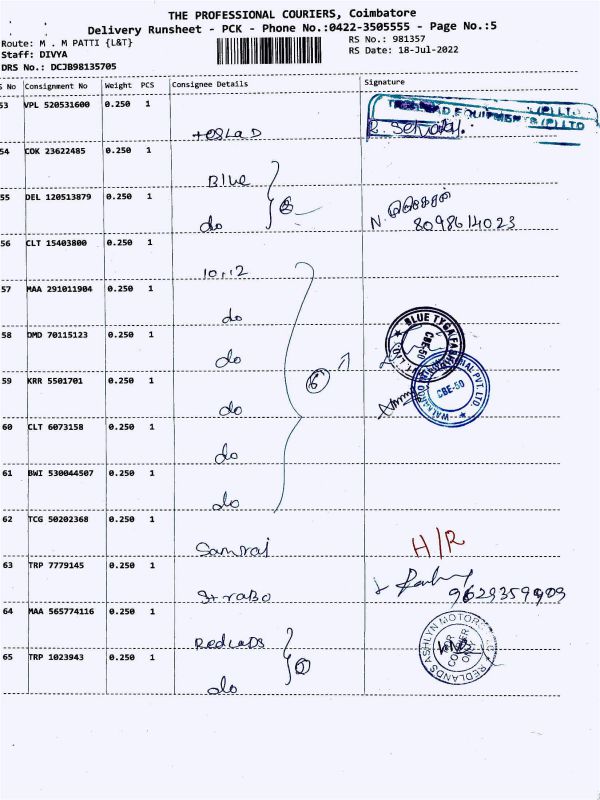 THE PROFESSIONAL COURIERS, Coimbatore
Delivery Runsheet - PCK - Phone No.:0422-3505555 - Page No.:5
Route: M . M PATTI {L&T}
RS No.: 981357
Staff: DIVYA
RS Date: 18-Jul-2022
DRS No.: DCJB98135705
S No Consignment No Weight PCS Consignee Details Signature
53 VPL 520531600 0.250 1
54 COK 23622485 0.250 1
Blue
55 DEL 120513879 0.250 1
do
8098614023
56 CLT 15403800 0.250 1
10,12
57 MAA 291011904 0.250 1
do
58 DMD 70115123 0.250 1
do
BLUE TYGA FASHIONS
CBE-50
59 KRR 5501701 0.250 1
do
PVT. LTD.
CBE-50
60 CLT 6073158 0.250 1
do
61 BWI 530044507 0.250 1
do
62 TCG 50202368 0.250 1
H/R
63 TRP 7779145 0.250 1
Strabo
9629359909
64 MAA 565774116 0.250 1
Redlads
REDLANDS ASHLYN MOTORS
65 TRP 1023943 0.250 1
do